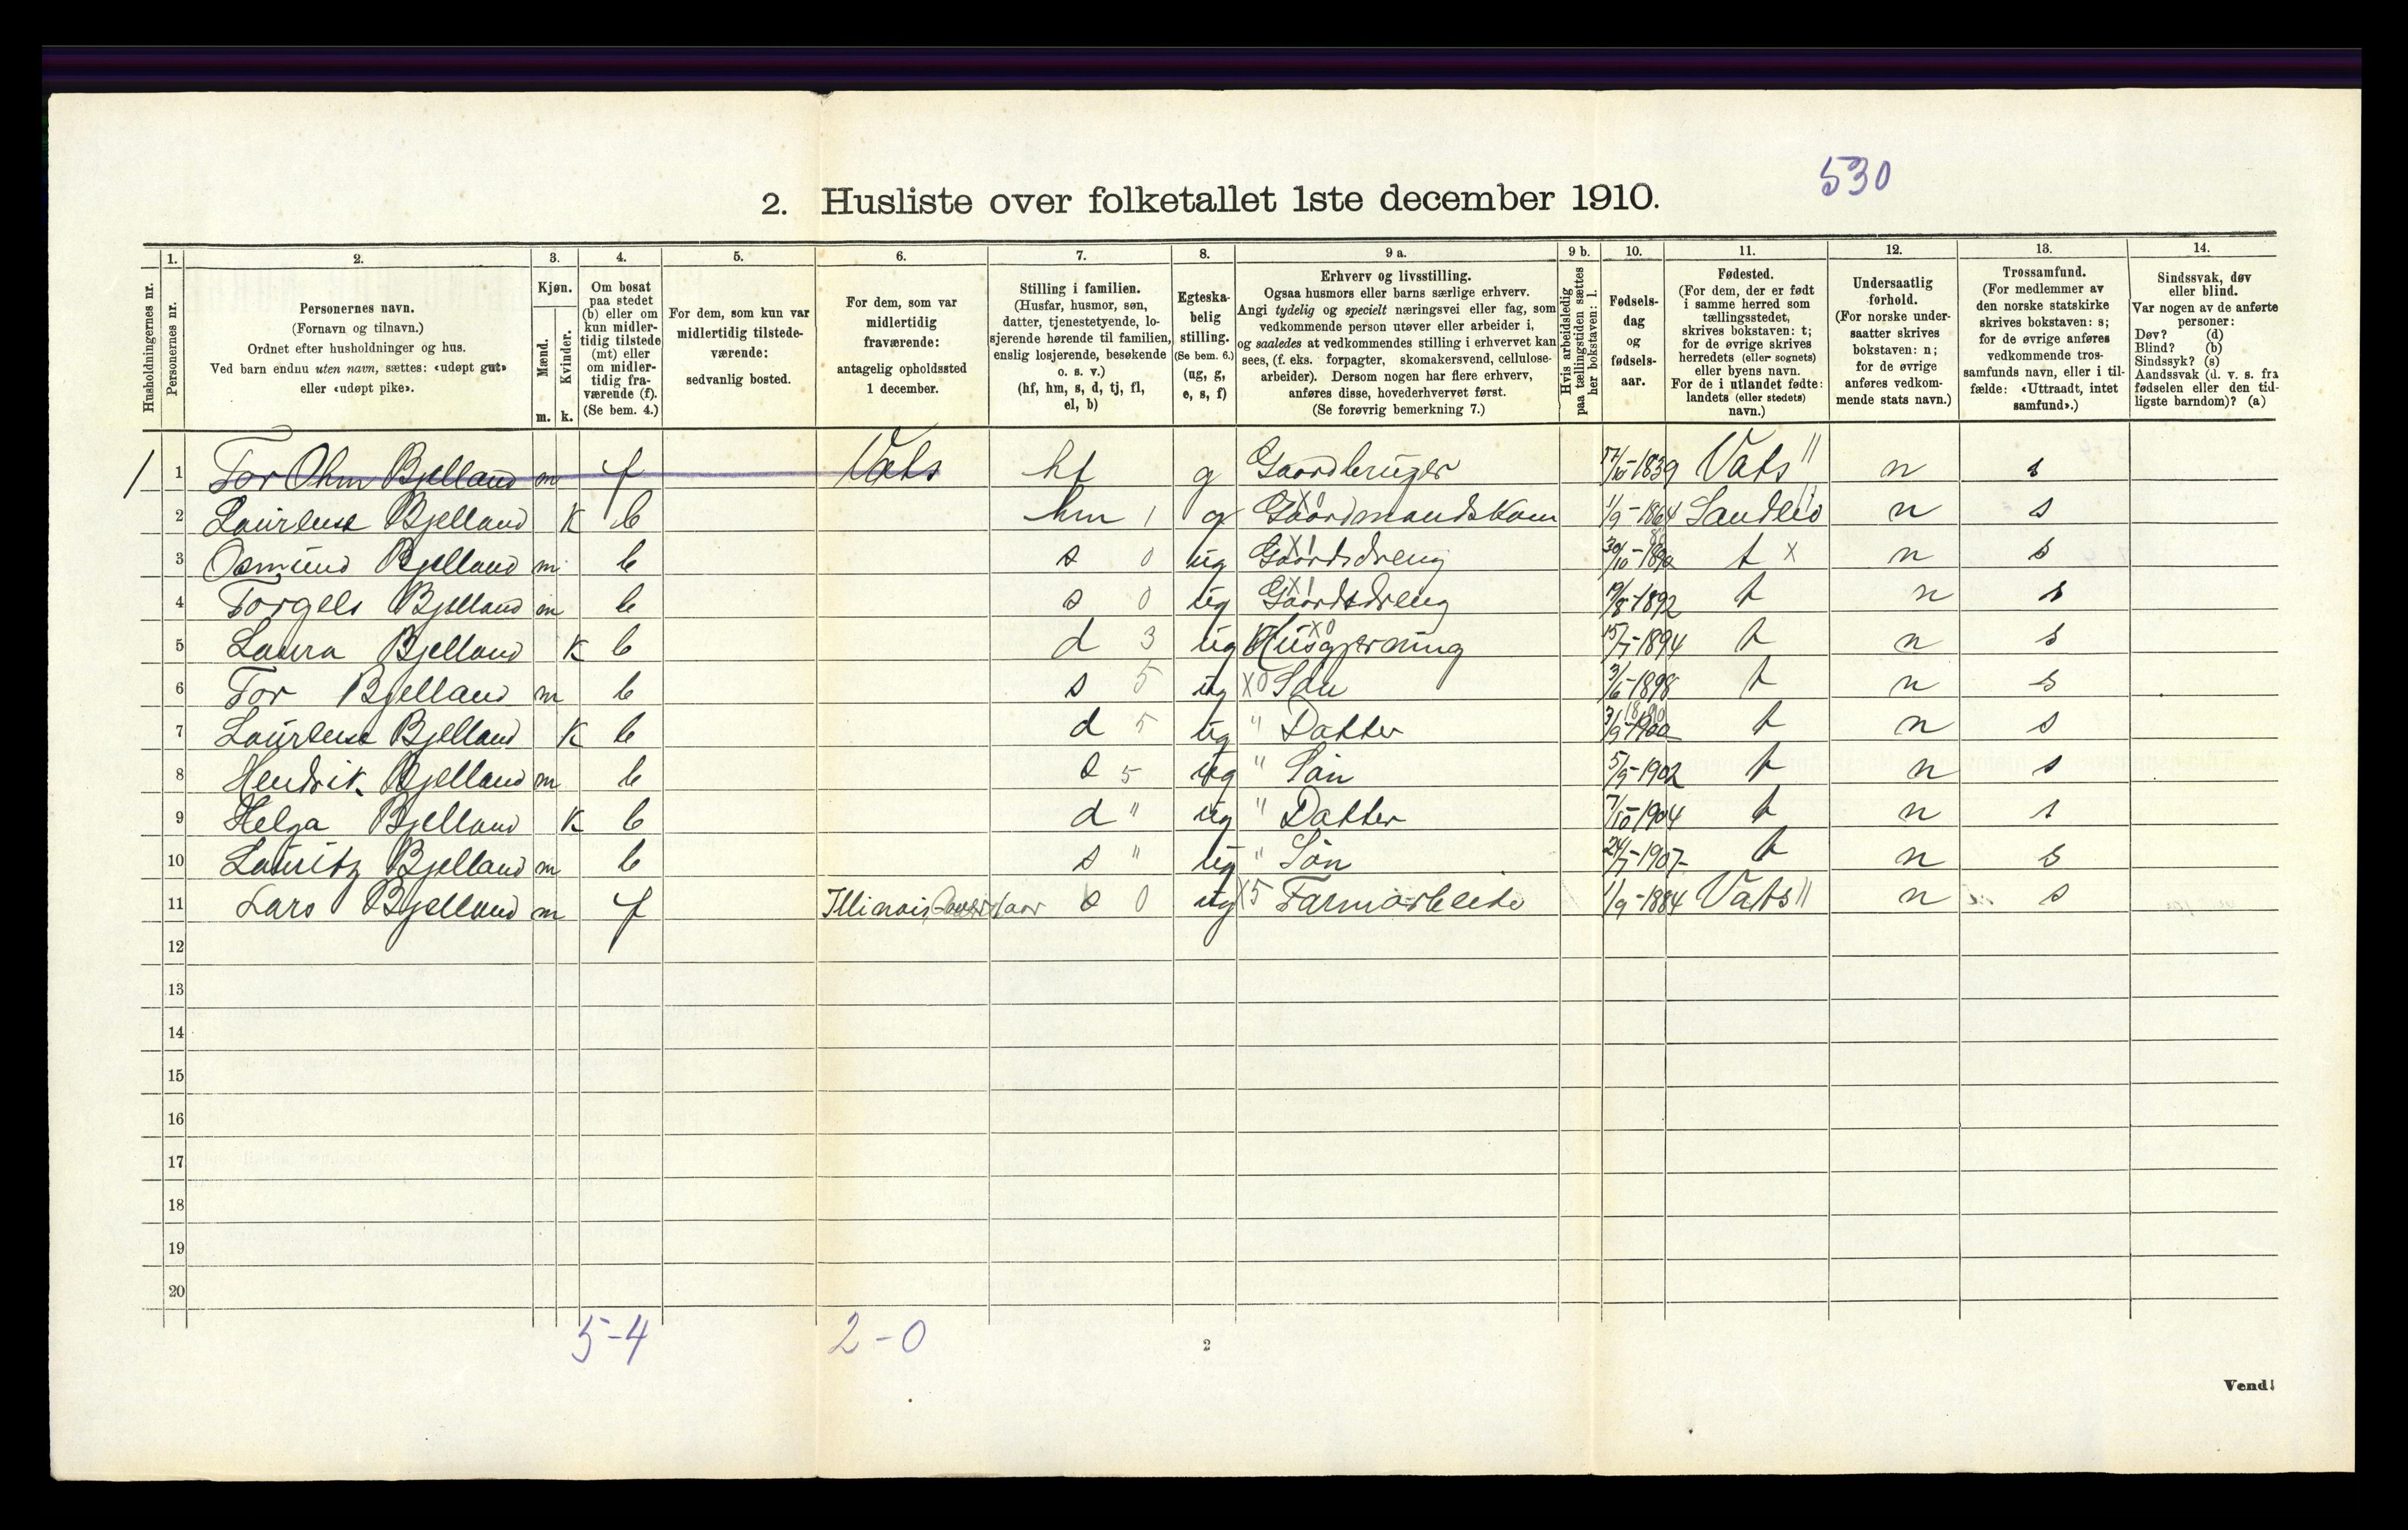 530
2. Husliste over folketallet 1ste december 1910.
Husholdningernes nr.
1. Personernes nr.
2. Personernes navn. (Fornavn og tilnavn.) Ordnet efter husholdninger og hus. Ved barn endnu uten navn, sættes: «udøpt gut» eller «udøpt pike».
3. Kjøn. Mænd. m. Kvinder. k.
4. Om bosat paa stedet (b) eller om kun midlertidig tilstede (mt) eller om midlertidig fraværende (f). (Se bem. 4.)
5. For dem, som kun var midlertidig tilstedeværende: sedvanlig bosted.
6. For dem, som var midlertidig fraværende: antagelig opholdssted 1 december.
7. Stilling i familien. (Husfar, husmor, søn, datter, tjenestetyende, losjerende hørende til familien, enslig losjerende, besøkende o. s. v.) (hf, hm, s, d, tj, fl, el, b)
8. Egteskabelig stilling. (Se bem. 6.) (ug, g, e, s, f)
9 a. Erhverv og livsstilling. Ogsaa husmors eller barns særlige erhverv. Angi tydelig og specielt næringsvei eller fag, som vedkommende person utøver eller arbeider i, og saaledes at vedkommendes stilling i erhvervet kan sees, (f. eks. forpagter, skomakersvend, cellulosearbeider). Dersom nogen har flere erhverv, anføres disse, hovederhvervet først. (Se forøvrig bemerkning 7.)
9 b. Hvis arbeidsledig paa tællingstiden sættes her bokstaven: l.
10. Fødselsdag og fødselsaar.
11. Fødested. (For dem, der er født i samme herred som tællingsstedet, skrives bokstaven: t; for de øvrige skrives herredets (eller sognets) eller byens navn. For de i utlandet fødte: landets (eller stedets) navn.)
12. Undersaatlig forhold. (For norske undersaatter skrives bokstaven: n; for de øvrige anføres vedkommende stats navn.)
13. Trossamfund. (For medlemmer av den norske statskirke skrives bokstaven: s; for de øvrige anføres vedkommende trossamfunds navn, eller i tilfælde: «Uttraadt, intet samfund».)
14. Sindssvak, døv eller blind. Var nogen av de anførte personer: Døv? (d) Blind? (b) Sindssyk? (s) Aandssvak (d. v. s. fra fødselen eller den tidligste barndom)? (a)
1 1 Tor Ohm Bjelland m f Vats hf g Gaardbruger 1839 Vats " n s
2 Laurense Bjelland K b hm 1 g Gaardmandskone 1/9-1864 Sandeid n s
3 Osmund Bjelland m b s 0 ug X1 Gaardsdreng 30/10 t X n s
4 Torgels Bjelland m b s 0 ug X1 Gaardsdreng 19/8-1892 t n s
5 Laura Bjelland K b d 3 ug X0 Husgjerning 15/7-1894 t n s
6 Tor Bjelland m b s 5 ug X0 Søn 3/6-1898 t n s
7 Laurense Bjelland K b d 5 ug " Datter 3/9-1900 t n s
8 Hendrik Bjelland m b s 5 ug " Søn 5/5-1902 t n s
9 Helga Bjelland K b d " ug " Datter 7/10-1904 t n s
10 Lauritz Bjelland m b s " ug " Søn 24/7-1907 t n s
11 Lars Bjelland m f Illinois s 0 ug X5 Farmarbeide 1/9-1884 Vats " n s
12
13
14
15
16
17
18
19
20
5-4 2-0
2
Vend!